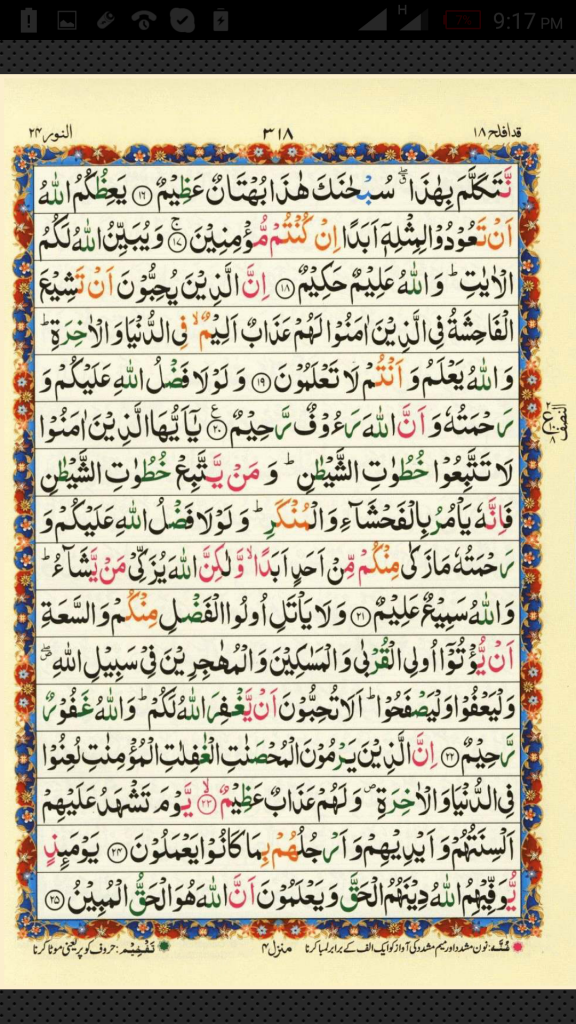 H 7% 9:17 PM
قد افلح ۱۸ ۳۱۸ النور ۲۴
نَّتَكَلَّمَ بِهٰذَا ۖ سُبْحٰنَكَ هٰذَا بُهْتَانٌ عَظِيْمٌ ۝۱۶ يَعِظُكُمُ اللّٰهُ
اَنْ تَعُوْدُوْا لِمِثْلِهٖۤ اَبَدًا اِنْ كُنْتُمْ مُّؤْمِنِيْنَ ۝۱۷ۚ وَيُبَيِّنُ اللّٰهُ لَكُمُ
الْاٰيٰتِ ؕ وَاللّٰهُ عَلِيْمٌ حَكِيْمٌ ۝۱۸ اِنَّ الَّذِيْنَ يُحِبُّوْنَ اَنْ تَشِيْعَ
الْفَاحِشَةُ فِي الَّذِيْنَ اٰمَنُوْا لَهُمْ عَذَابٌ اَلِيْمٌ ۙ فِي الدُّنْيَا وَالْاٰخِرَةِ ؕ
وَاللّٰهُ يَعْلَمُ وَاَنْتُمْ لَا تَعْلَمُوْنَ ۝۱۹ وَلَوْلَا فَضْلُ اللّٰهِ عَلَيْكُمْ وَ
رَحْمَتُهٗ وَاَنَّ اللّٰهَ رَءُوْفٌ رَّحِيْمٌ ۝۲۰ۧ يٰۤاَيُّهَا الَّذِيْنَ اٰمَنُوْا
لَا تَتَّبِعُوْا خُطُوٰتِ الشَّيْطٰنِ ؕ وَمَنْ يَّتَّبِعْ خُطُوٰتِ الشَّيْطٰنِ
فَاِنَّهٗ يَاْمُرُ بِالْفَحْشَآءِ وَالْمُنْكَرِ ؕ وَلَوْلَا فَضْلُ اللّٰهِ عَلَيْكُمْ وَ
رَحْمَتُهٗ مَا زَكٰى مِنْكُمْ مِّنْ اَحَدٍ اَبَدًا ۙ وَّلٰكِنَّ اللّٰهَ يُزَكِّيْ مَنْ يَّشَآءُ ؕ
وَاللّٰهُ سَمِيْعٌ عَلِيْمٌ ۝۲۱ وَلَا يَاْتَلِ اُولُوا الْفَضْلِ مِنْكُمْ وَالسَّعَةِ
اَنْ يُّؤْتُوْۤا اُولِي الْقُرْبٰى وَالْمَسٰكِيْنَ وَالْمُهٰجِرِيْنَ فِيْ سَبِيْلِ اللّٰهِ ۖ
وَلْيَعْفُوْا وَلْيَصْفَحُوْا ؕ اَلَا تُحِبُّوْنَ اَنْ يَّغْفِرَ اللّٰهُ لَكُمْ ؕ وَاللّٰهُ غَفُوْرٌ
رَّحِيْمٌ ۝۲۲ اِنَّ الَّذِيْنَ يَرْمُوْنَ الْمُحْصَنٰتِ الْغٰفِلٰتِ الْمُؤْمِنٰتِ لُعِنُوْا
فِي الدُّنْيَا وَالْاٰخِرَةِ ۪ وَلَهُمْ عَذَابٌ عَظِيْمٌ ۝۲۳ۙ يَّوْمَ تَشْهَدُ عَلَيْهِمْ
اَلْسِنَتُهُمْ وَاَيْدِيْهِمْ وَاَرْجُلُهُمْ بِمَا كَانُوْا يَعْمَلُوْنَ ۝۲۴ يَوْمَئِذٍ
يُّوَفِّيْهِمُ اللّٰهُ دِيْنَهُمُ الْحَقَّ وَيَعْلَمُوْنَ اَنَّ اللّٰهَ هُوَ الْحَقُّ الْمُبِيْنُ ۝۲۵
النصف
غُنَّہ: نون مشدد اور میم مشدد کی آواز کو ایک الف کے برابر لمبا کرنا منزل ۴ تَفْخِیْم: حروف کو پُر یعنی موٹا کرنا